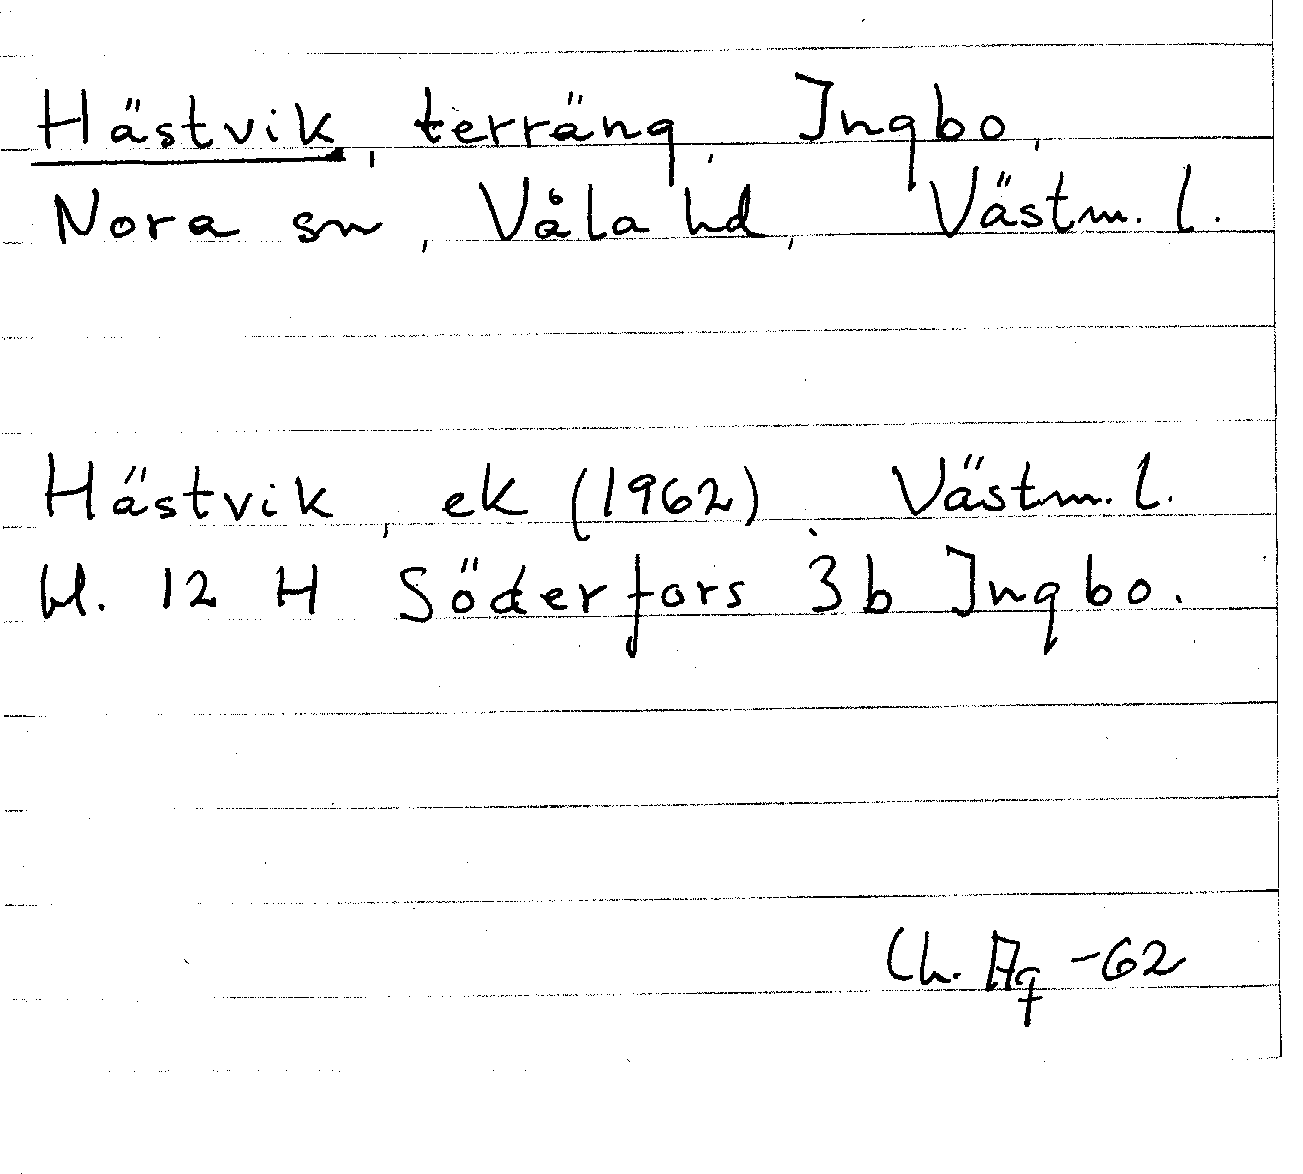 Hästvik, terräng, Ingbo,
Nora sn, Våla hd, Västm. l.
Hästvik, ek (1962). Västm. l.
bl. 12 H Söderfors 3b Ingbo.
Ch. -62